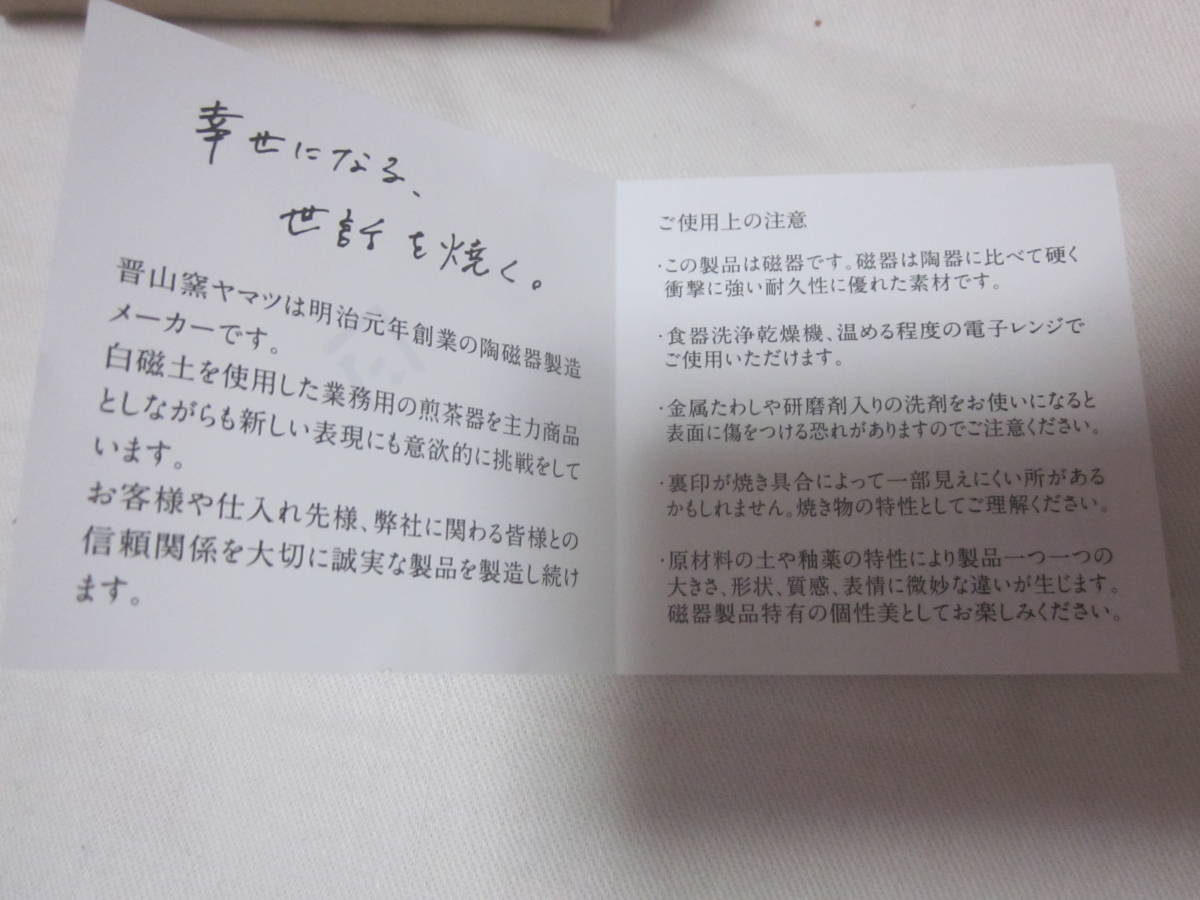 幸せになる、
世話を焼く。
晋山窯ヤマツは明治元年創業の陶磁器製造
メーカーです。
白磁土を使用した業務用の煎茶器を主力商品
としながらも新しい表現にも意欲的に挑戦をして
います。
お客様や仕入れ先様、弊社に関わる皆様との
信頼関係を大切に誠実な製品を製造し続け
ます。
ご使用上の注意
・この製品は磁器です。磁器は陶器に比べて硬く
衝撃に強い耐久性に優れた素材です。
・食器洗浄乾燥機、温める程度の電子レンジで
ご使用いただけます。
・金属たわしや研磨剤入りの洗剤をお使いになると
表面に傷をつける恐れがありますのでご注意ください。
・裏印が焼き具合によって一部見えにくい所がある
かもしれません。焼き物の特性としてご理解ください。
・原材料の土や釉薬の特性により製品一つ一つの
大きさ、形状、質感、表情に微妙な違いが生じます。
磁器製品特有の個性美としてお楽しみください。